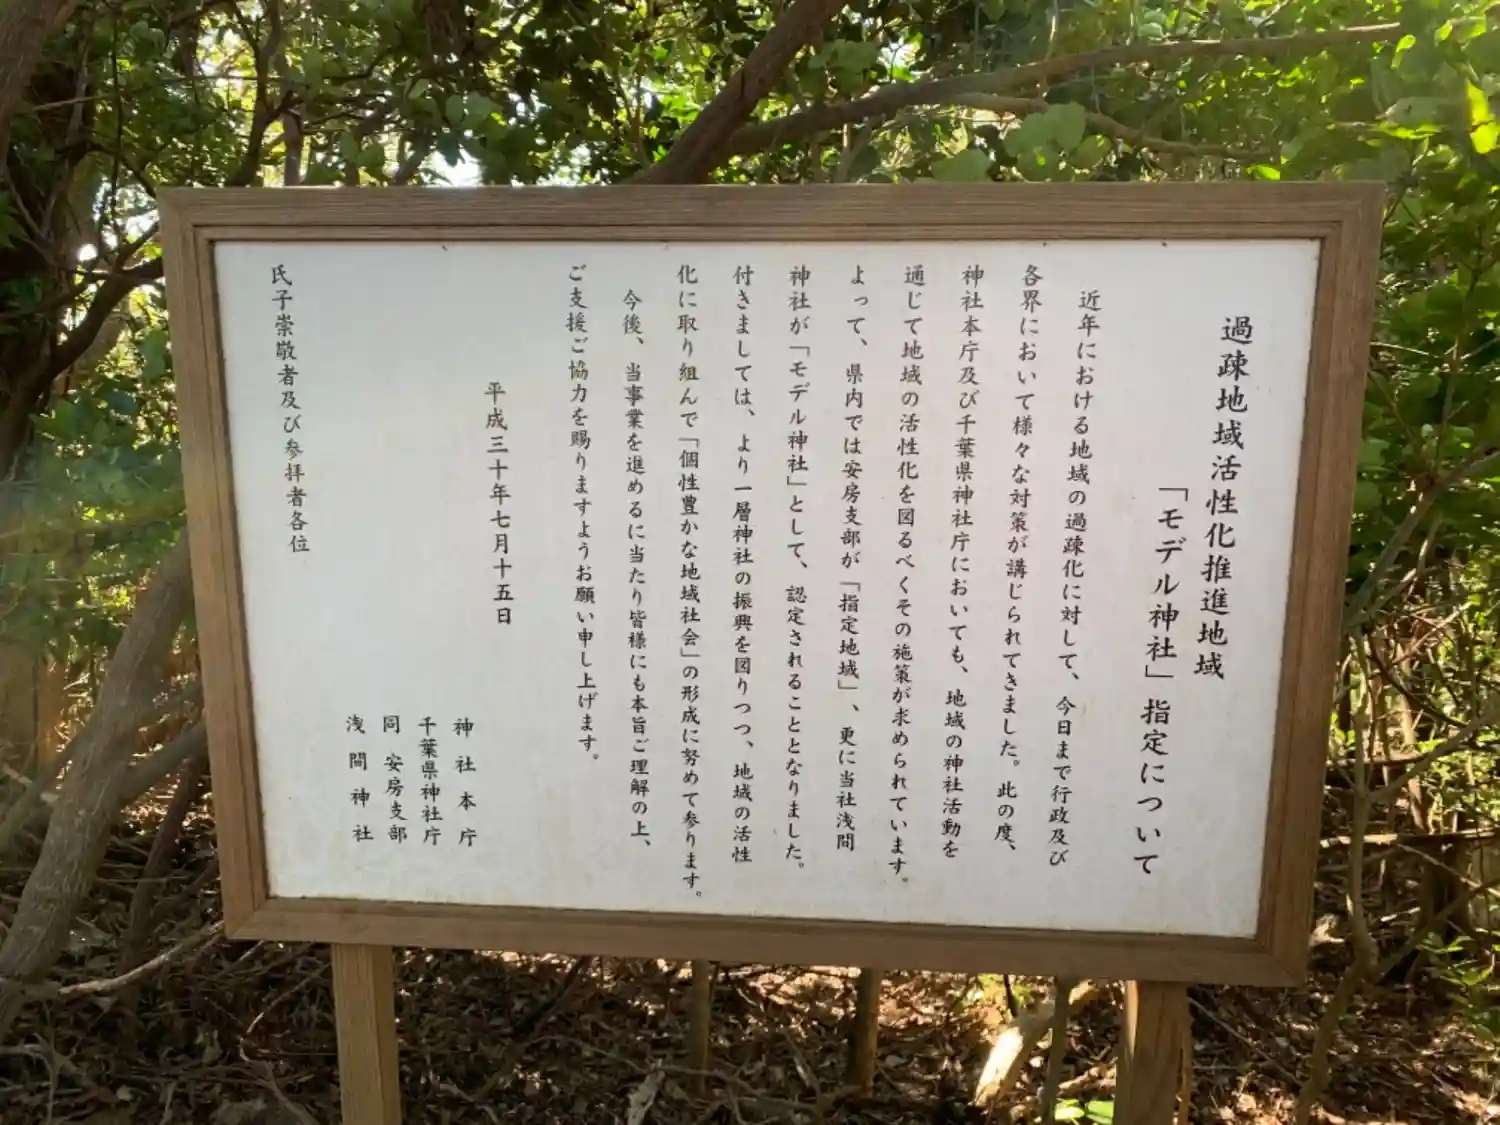 過疎地域活性化推進地域
「モデル神社」指定について
近年における地域の過疎化に対して、今日まで行政及び
各界において様々な対策が講じられてきました。此の度、
神社本庁及び千葉県神社庁においても、地域の神社活動を
通じて地域の活性化を図るべくその施策が求められています。
よって、県内では安房支部が「指定地域」、更に当社浅間
神社が「モデル神社」として、認定されることとなりました。
付きましては、より一層神社の振興を図りつつ、地域の活性
化に取り組んで「個性豊かな地域社会」の形成に努めて参ります。
今後、当事業を進めるに当たり皆様にも本旨ご理解の上、
ご支援ご協力を賜りますようお願い申し上げます。
平成三十年七月十五日
神社本庁
千葉県神社庁
同 安房支部
浅間神社
氏子崇敬者及び参拝者各位